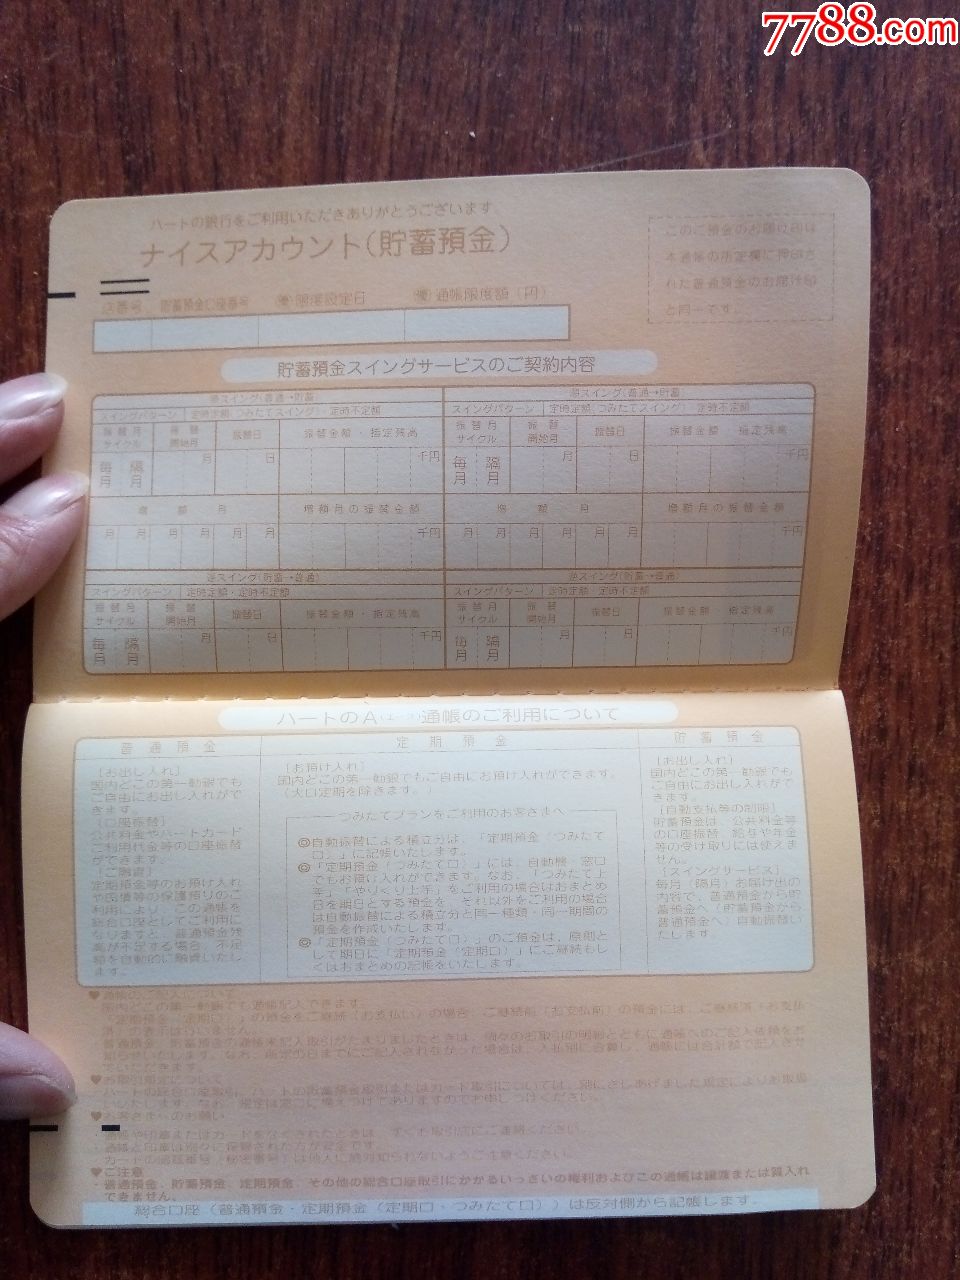 7788.com
ハートの銀行をご利用いただきありがとうございます
ナイスアカウント(貯蓄預金)
このご預金のお届け印は
本通帳の指定欄に押印さ
れた普通預金のお届け印
と同一です。
店番号 貯蓄預金口座番号 ㊝限度設定日 ㊝通帳限度額(円)
貯蓄預金スイングサービスのご契約内容
順スイング(普通→貯蓄) 順スイング(普通→貯蓄)
スイングパターン 定時定額(つみたてスイング)・定時不定額 スイングパターン 定時定額(つみたてスイング)・定時不定額
振替月 振替 振替日 振替金額・指定残高 振替月 振替 振替日 振替金額・指定残高
サイクル 開始月 サイクル 開始月
毎 隔 月 日 千円 毎 隔 月 日 千円
月 月 月 月
増額月 増額月の振替金額 増額月 増額月の振替金額
月 月 月 月 月 月 千円 月 月 月 月 月 月 千円
逆スイング(貯蓄→普通) 逆スイング(貯蓄→普通)
スイングパターン 定時定額・定時不定額 スイングパターン 定時定額・定時不定額
振替月 振替 振替日 振替金額・指定残高 振替月 振替 振替日 振替金額・指定残高
サイクル 開始月 サイクル 開始月
毎 隔 月 日 千円 毎 隔 月 日 千円
月 月 月 月
ハートのA(エース)通帳のご利用について
普通預金
[お出し入れ]
国内どこの第一勧銀でも
ご自由にお出し入れがで
きます。
[口座振替]
公共料金やハートカード
ご利用代金等の口座振替
ができます。
[ご融資]
定期預金等のお預け入れ
や国債等の保護預りのご
利用により、この通帳を
総合口座としてご利用に
なりますと、普通預金残
高が不足する場合、不足
額を自動的に融資いたし
ます。
定期預金
[お預け入れ]
国内どこの第一勧銀でもご自由にお預け入れができます。
(大口定期を除きます。)
つみたてプランをご利用のお客さまへ
◎自動振替による積立分は、「定期預金(つみたて
口)」に記帳いたします。
◎「定期預金(つみたて口)」には、自動機・窓口
でもお預け入れができます。なお、「つみたて上
手」「やりくり上手」をご利用の場合はおまとめ
日を期日とする預金を、それ以外をご利用の場合
は自動振替による積立分と同一種類・同一期間の
預金を作成いたします。
◎「定期預金(つみたて口)」のご預金は、原則と
して期日に「定期預金(定期口)」にご継続もし
くはおまとめの記帳をいたします。
貯蓄預金
[お出し入れ]
国内どこの第一勧銀でも
ご自由にお出し入れがで
きます。
[自動支払等の制限]
貯蓄預金は、公共料金等
の口座振替、給与や年金
等の受け取りには使えま
せん。
[スイングサービス]
毎月(隔月)お届け出の
内容で、普通預金から貯
蓄預金へ(貯蓄預金から
普通預金へ)自動振替い
たします。
♥通帳のご記入について
国内どこの第一勧銀でも通帳記入できます。
「定期預金(定期口)」の預金をご継続(お支払い)の場合、ご継続前(お支払前)の預金には、ご継続済(お支払
済)の表示は行いません。
♥お取引規定について
♥お客さまへのお願い
・通帳や印章またはカードをなくされたときは、すぐお取引店にご連絡ください。
・通帳と印章は別々に保管された方が安全です。
・カードの暗証番号(秘密番号)は他人に絶対知られないようご注意ください。
♥ご注意
・普通預金、貯蓄預金、定期預金、その他の総合口座取引にかかるいっさいの権利およびこの通帳は譲渡または質入れ
できません。
総合口座(普通預金・定期預金(定期口・つみたて口))は反対側から記帳します。